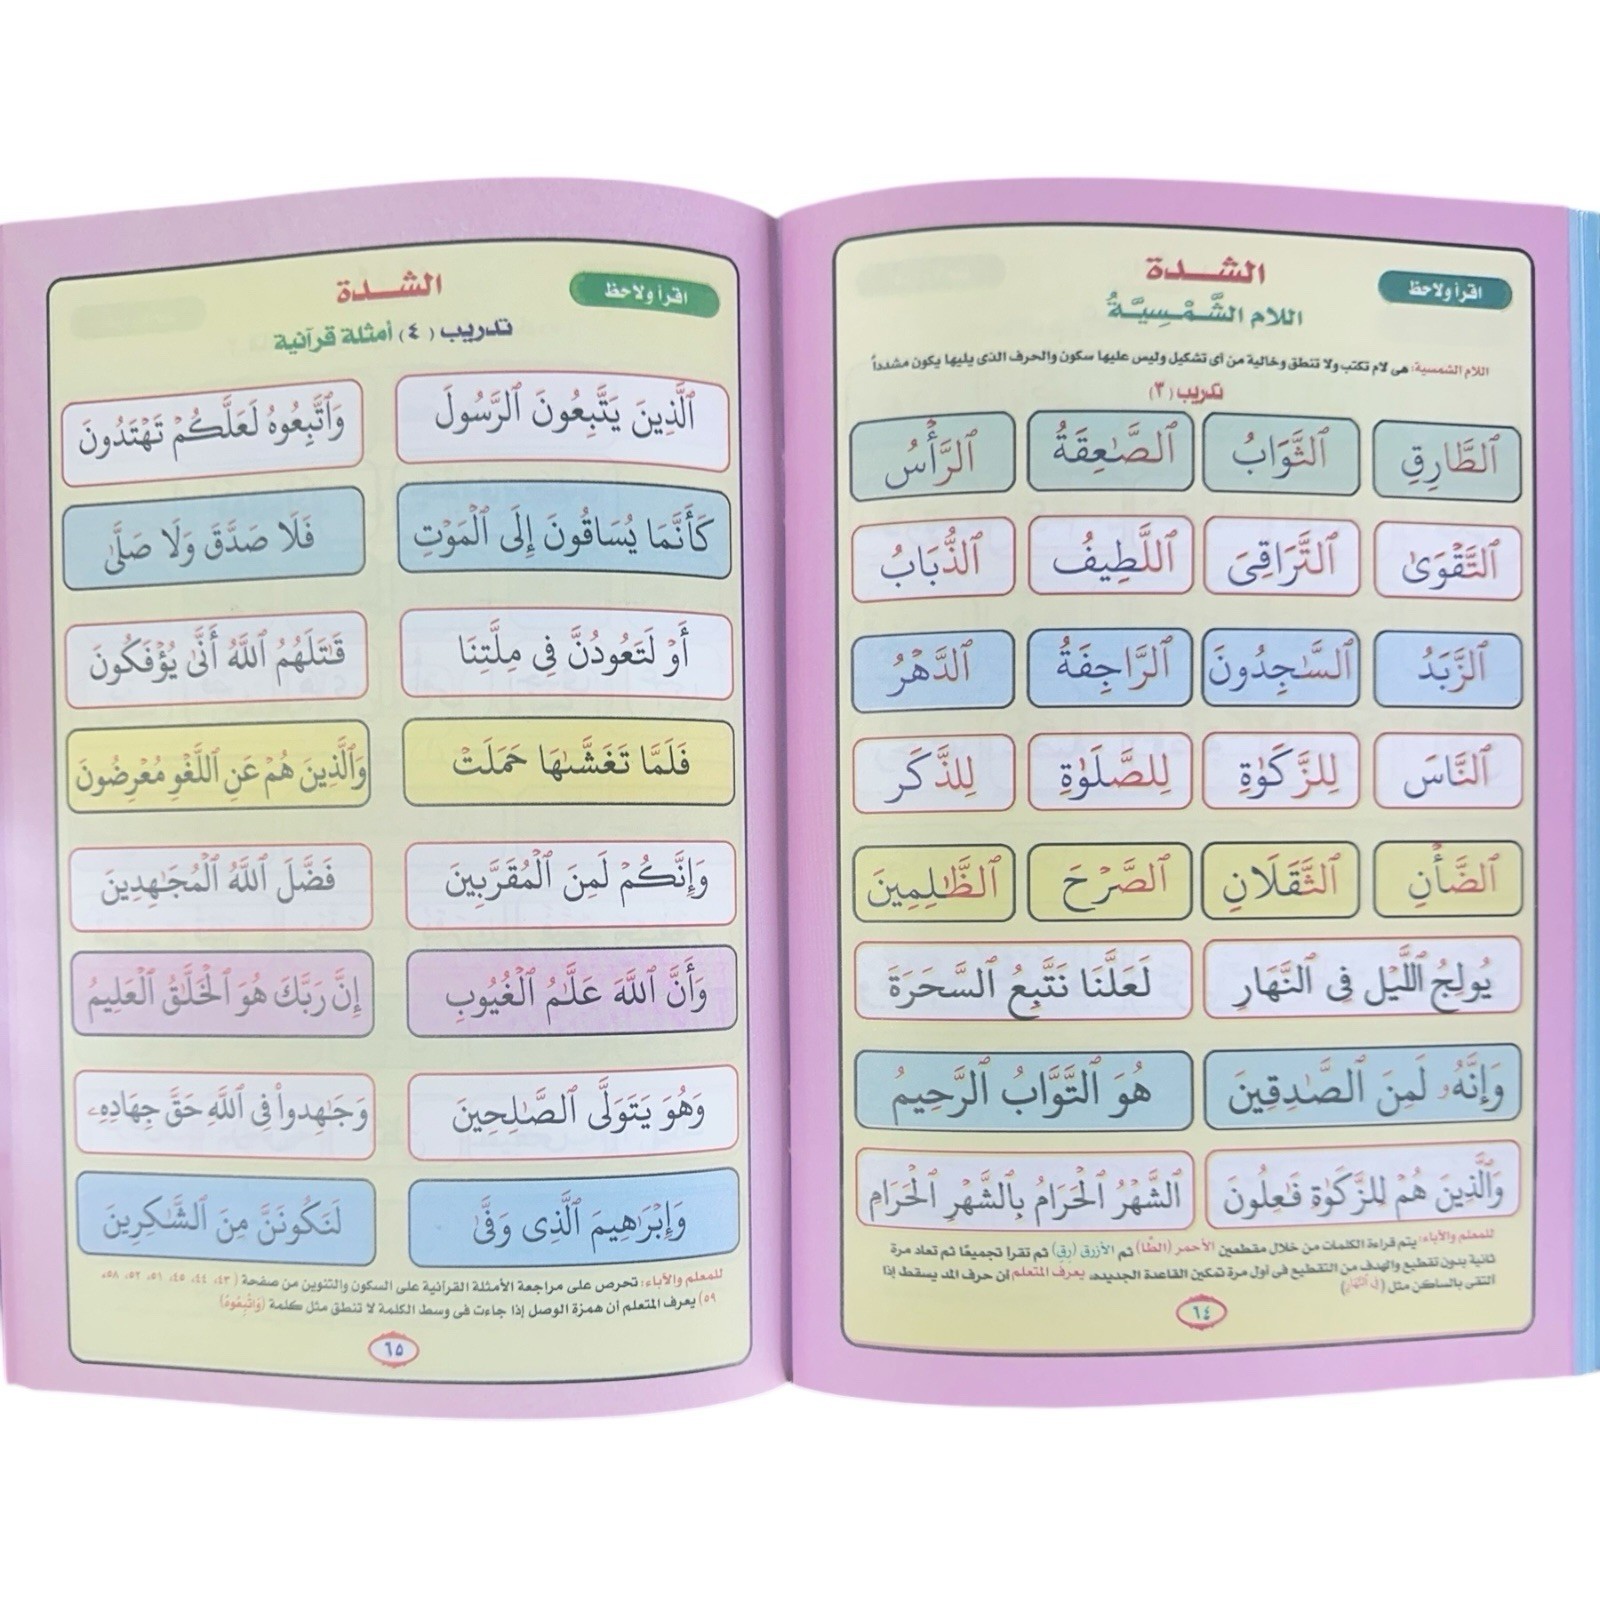 اقرأ ولاحظ
الشدة
اللام الشَّمْسِيَّةُ
اللام الشمسية: هى لام تكتب ولا تنطق وخالية من أى تشكيل وليس عليها سكون والحرف الذى يليها يكون مشدداً
تدريب (٣)
ٱلطَّارِقِ ٱلثَّوَابُ ٱلصَّٰعِقَةُ ٱلرَّأْسُ
ٱلتَّقْوَىٰ ٱلتَّرَاقِىَ ٱللَّطِيفُ ٱلذُّبَابُ
ٱلزَّبَدُ ٱلسَّٰجِدُونَ ٱلرَّاجِفَةُ ٱلدَّهْرُ
ٱلنَّاسَ لِلزَّكَوٰةِ لِلصَّلَوٰةِ لِلذَّكَرِ
ٱلضَّأْنِ ٱلثَّقَلَانِ ٱلصَّرْحَ ٱلظَّٰلِمِينَ
يُولِجُ ٱللَّيْلَ فِى ٱلنَّهَارِ لَعَلَّنَا نَتَّبِعُ ٱلسَّحَرَةَ
وَإِنَّهُۥ لَمِنَ ٱلصَّٰدِقِينَ هُوَ ٱلتَّوَّابُ ٱلرَّحِيمُ
وَٱلَّذِينَ هُمْ لِلزَّكَوٰةِ فَٰعِلُونَ ٱلشَّهْرُ ٱلْحَرَامُ بِٱلشَّهْرِ ٱلْحَرَامِ
للمعلم والآباء: يتم قراءة الكلمات من خلال مقطعين الأحمر (الطَّا) ثم الأزرق (رِقِ) ثم تقرأ تجميعًا ثم تعاد مرة
ثانية بدون تقطيع والهدف من التقطيع فى أول مرة تمكين القاعدة الجديده، يعرف المتعلم أن حرف المد يسقط إذا
التقى بالساكن مثل (فِى ٱلنَّهَارِ)
٦٤
اقرأ ولاحظ
الشدة
تدريب (٤) أمثلة قرآنية
ٱلَّذِينَ يَتَّبِعُونَ ٱلرَّسُولَ وَٱتَّبِعُوهُ لَعَلَّكُمْ تَهْتَدُونَ
كَأَنَّمَا يُسَاقُونَ إِلَى ٱلْمَوْتِ فَلَا صَدَّقَ وَلَا صَلَّىٰ
أَوْ لَتَعُودُنَّ فِى مِلَّتِنَا قَٰتَلَهُمُ ٱللَّهُ أَنَّىٰ يُؤْفَكُونَ
فَلَمَّا تَغَشَّىٰهَا حَمَلَتْ وَٱلَّذِينَ هُمْ عَنِ ٱللَّغْوِ مُعْرِضُونَ
وَإِنَّكُمْ لَمِنَ ٱلْمُقَرَّبِينَ فَضَّلَ ٱللَّهُ ٱلْمُجَٰهِدِينَ
وَأَنَّ ٱللَّهَ عَلَّٰمُ ٱلْغُيُوبِ إِنَّ رَبَّكَ هُوَ ٱلْخَلَّٰقُ ٱلْعَلِيمُ
وَهُوَ يَتَوَلَّى ٱلصَّٰلِحِينَ وَجَٰهِدُوا۟ فِى ٱللَّهِ حَقَّ جِهَادِهِۦ
وَإِبْرَٰهِيمَ ٱلَّذِى وَفَّىٰٓ لَنَكُونَنَّ مِنَ ٱلشَّٰكِرِينَ
للمعلم والآباء: تحرص على مراجعة الأمثلة القرآنية على السكون والتنوين من صفحة (٤٣، ٤٤، ٤٥، ٥١، ٥٢، ٥٨،
٥٩) يعرف المتعلم أن همزة الوصل إذا جاءت فى وسط الكلمة لا تنطق مثل كلمة (وَاتَّبِعُوهُ)
٦٥